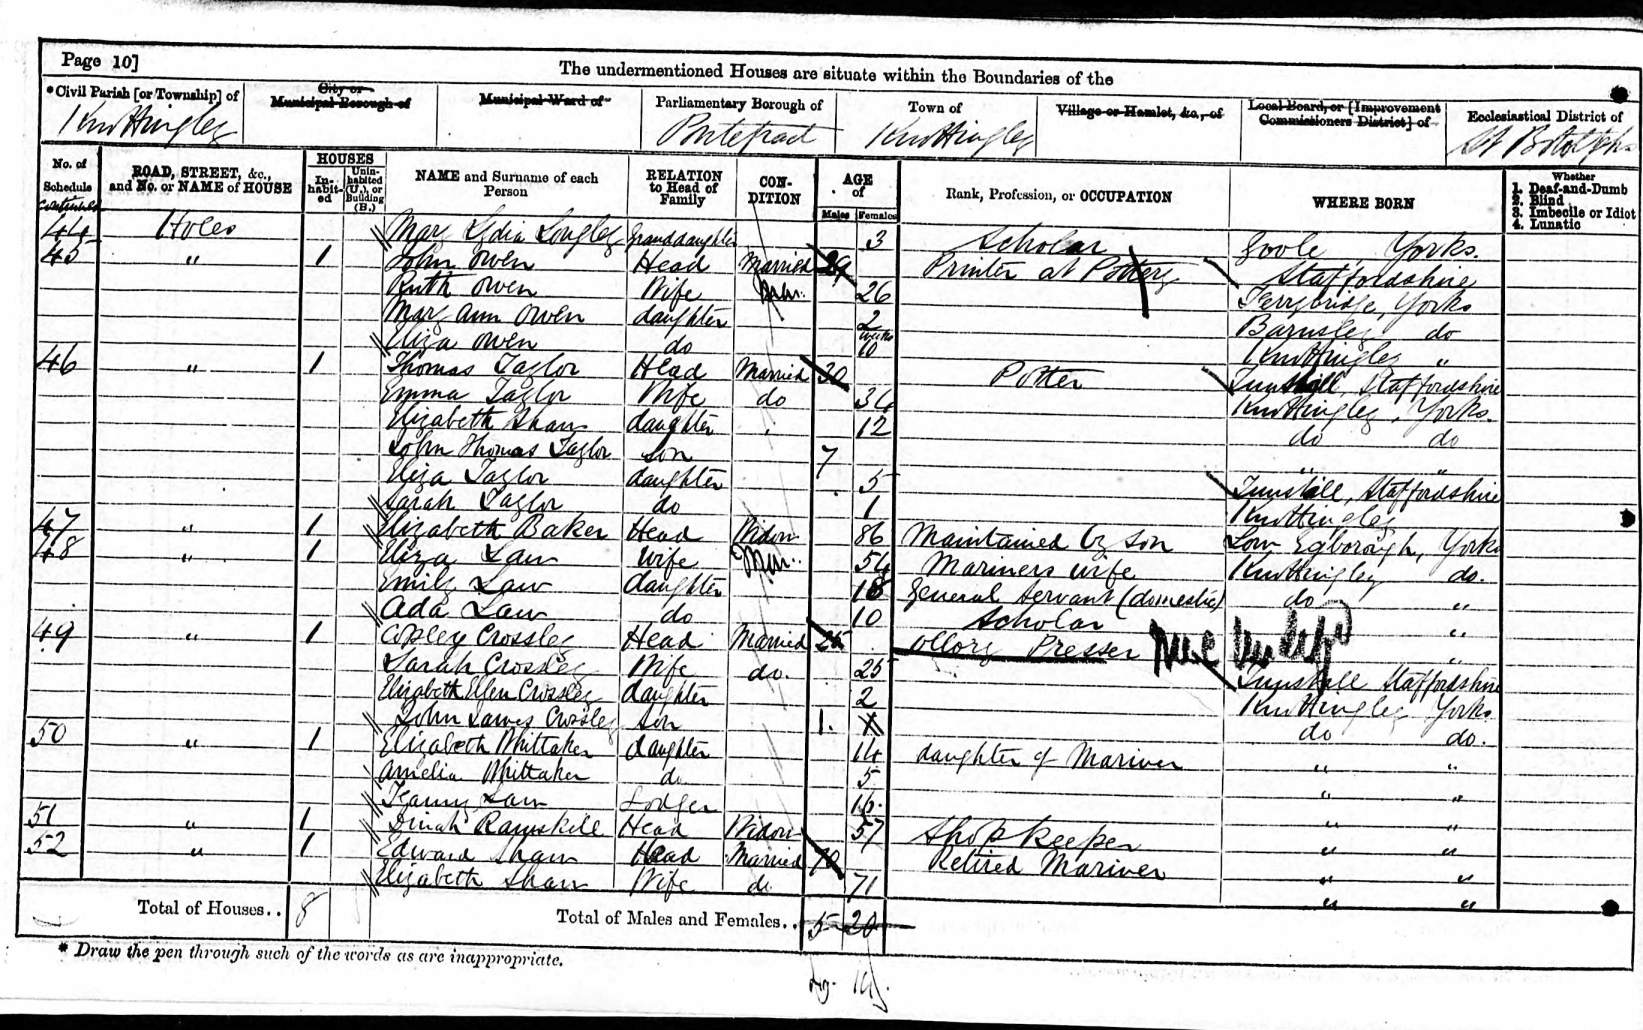 Page 10]
The undermentioned Houses are situate within the Boundaries of the
*Civil Parish [or Township] of
City or Municipal Borough of
Municipal Ward of
Parliamentary Borough of
Town of
Village or Hamlet, &c., of
Local Board, or [Improvement Commissioners District] of
Ecclesiastical District of
Knottingley Pontefract Knottingley St Botolphs
No. of Schedule
ROAD, STREET, &c., and No. or NAME of HOUSE
HOUSES
In-habit-ed
Unin-habited (U.), or Building (B.)
NAME and Surname of each Person
RELATION to Head of Family
CON-DITION
AGE of
Males Females
Rank, Profession, or OCCUPATION
WHERE BORN
Whether
1. Deaf-and-Dumb
2. Blind
3. Imbecile or Idiot
4. Lunatic
continued
44 Holes Mary Lydia Longley Granddaughter 3 Scholar Goole, Yorks.
45 " 1 John Owen Head Married 29 Printer at Pottery Staffordshire
Ruth Owen Wife 26 Ferrybridge, Yorks
Mary Ann Owen daughter 2 Barnsley do
Eliza Owen do weeks 10 Knottingley "
46 " 1 Thomas Taylor Head Married 30 Potter Tunstall, Staffordshire
Emma Taylor Wife do 34 Knottingley, Yorks.
Elizabeth Shaw daughter 12 do do
John Thomas Taylor son 7 " "
Eliza Taylor daughter 5 Tunstall, Staffordshire
Sarah Taylor do 1 Knottingley
47 " 1 Elizabeth Baker Head Widow 86 Maintained by son Low Egborough, Yorks
48 " 1 Eliza Law Wife 54 Mariners wife Knottingley do.
Emily Law daughter 18 General Servant (domestic) do "
Ada Law do 10 Scholar "
49 " 1 Copley Crossley Head Married 25 Presser "
Sarah Crossley Wife do. 25 Tunstall Staffordshire
Elizabeth Ellen Crossley daughter 2 Knottingley Yorks
John James Crossley Son 1. do do.
50 " 1 Elizabeth Whittaker daughter 14 daughter of Mariner " "
Amelia Whittaker do 5 " "
Fanny Law Lodger 16. " "
51 " 1 Dinah Ramskill Head Widow 57 Shop keeper " "
52 " 1 Edward Shaw Head Married 70 Retired Mariner " "
Elizabeth Shaw Wife do 71 " "
Total of Houses.. 8 Total of Males and Females.. 5 20
* Draw the pen through such of the words as are inappropriate.